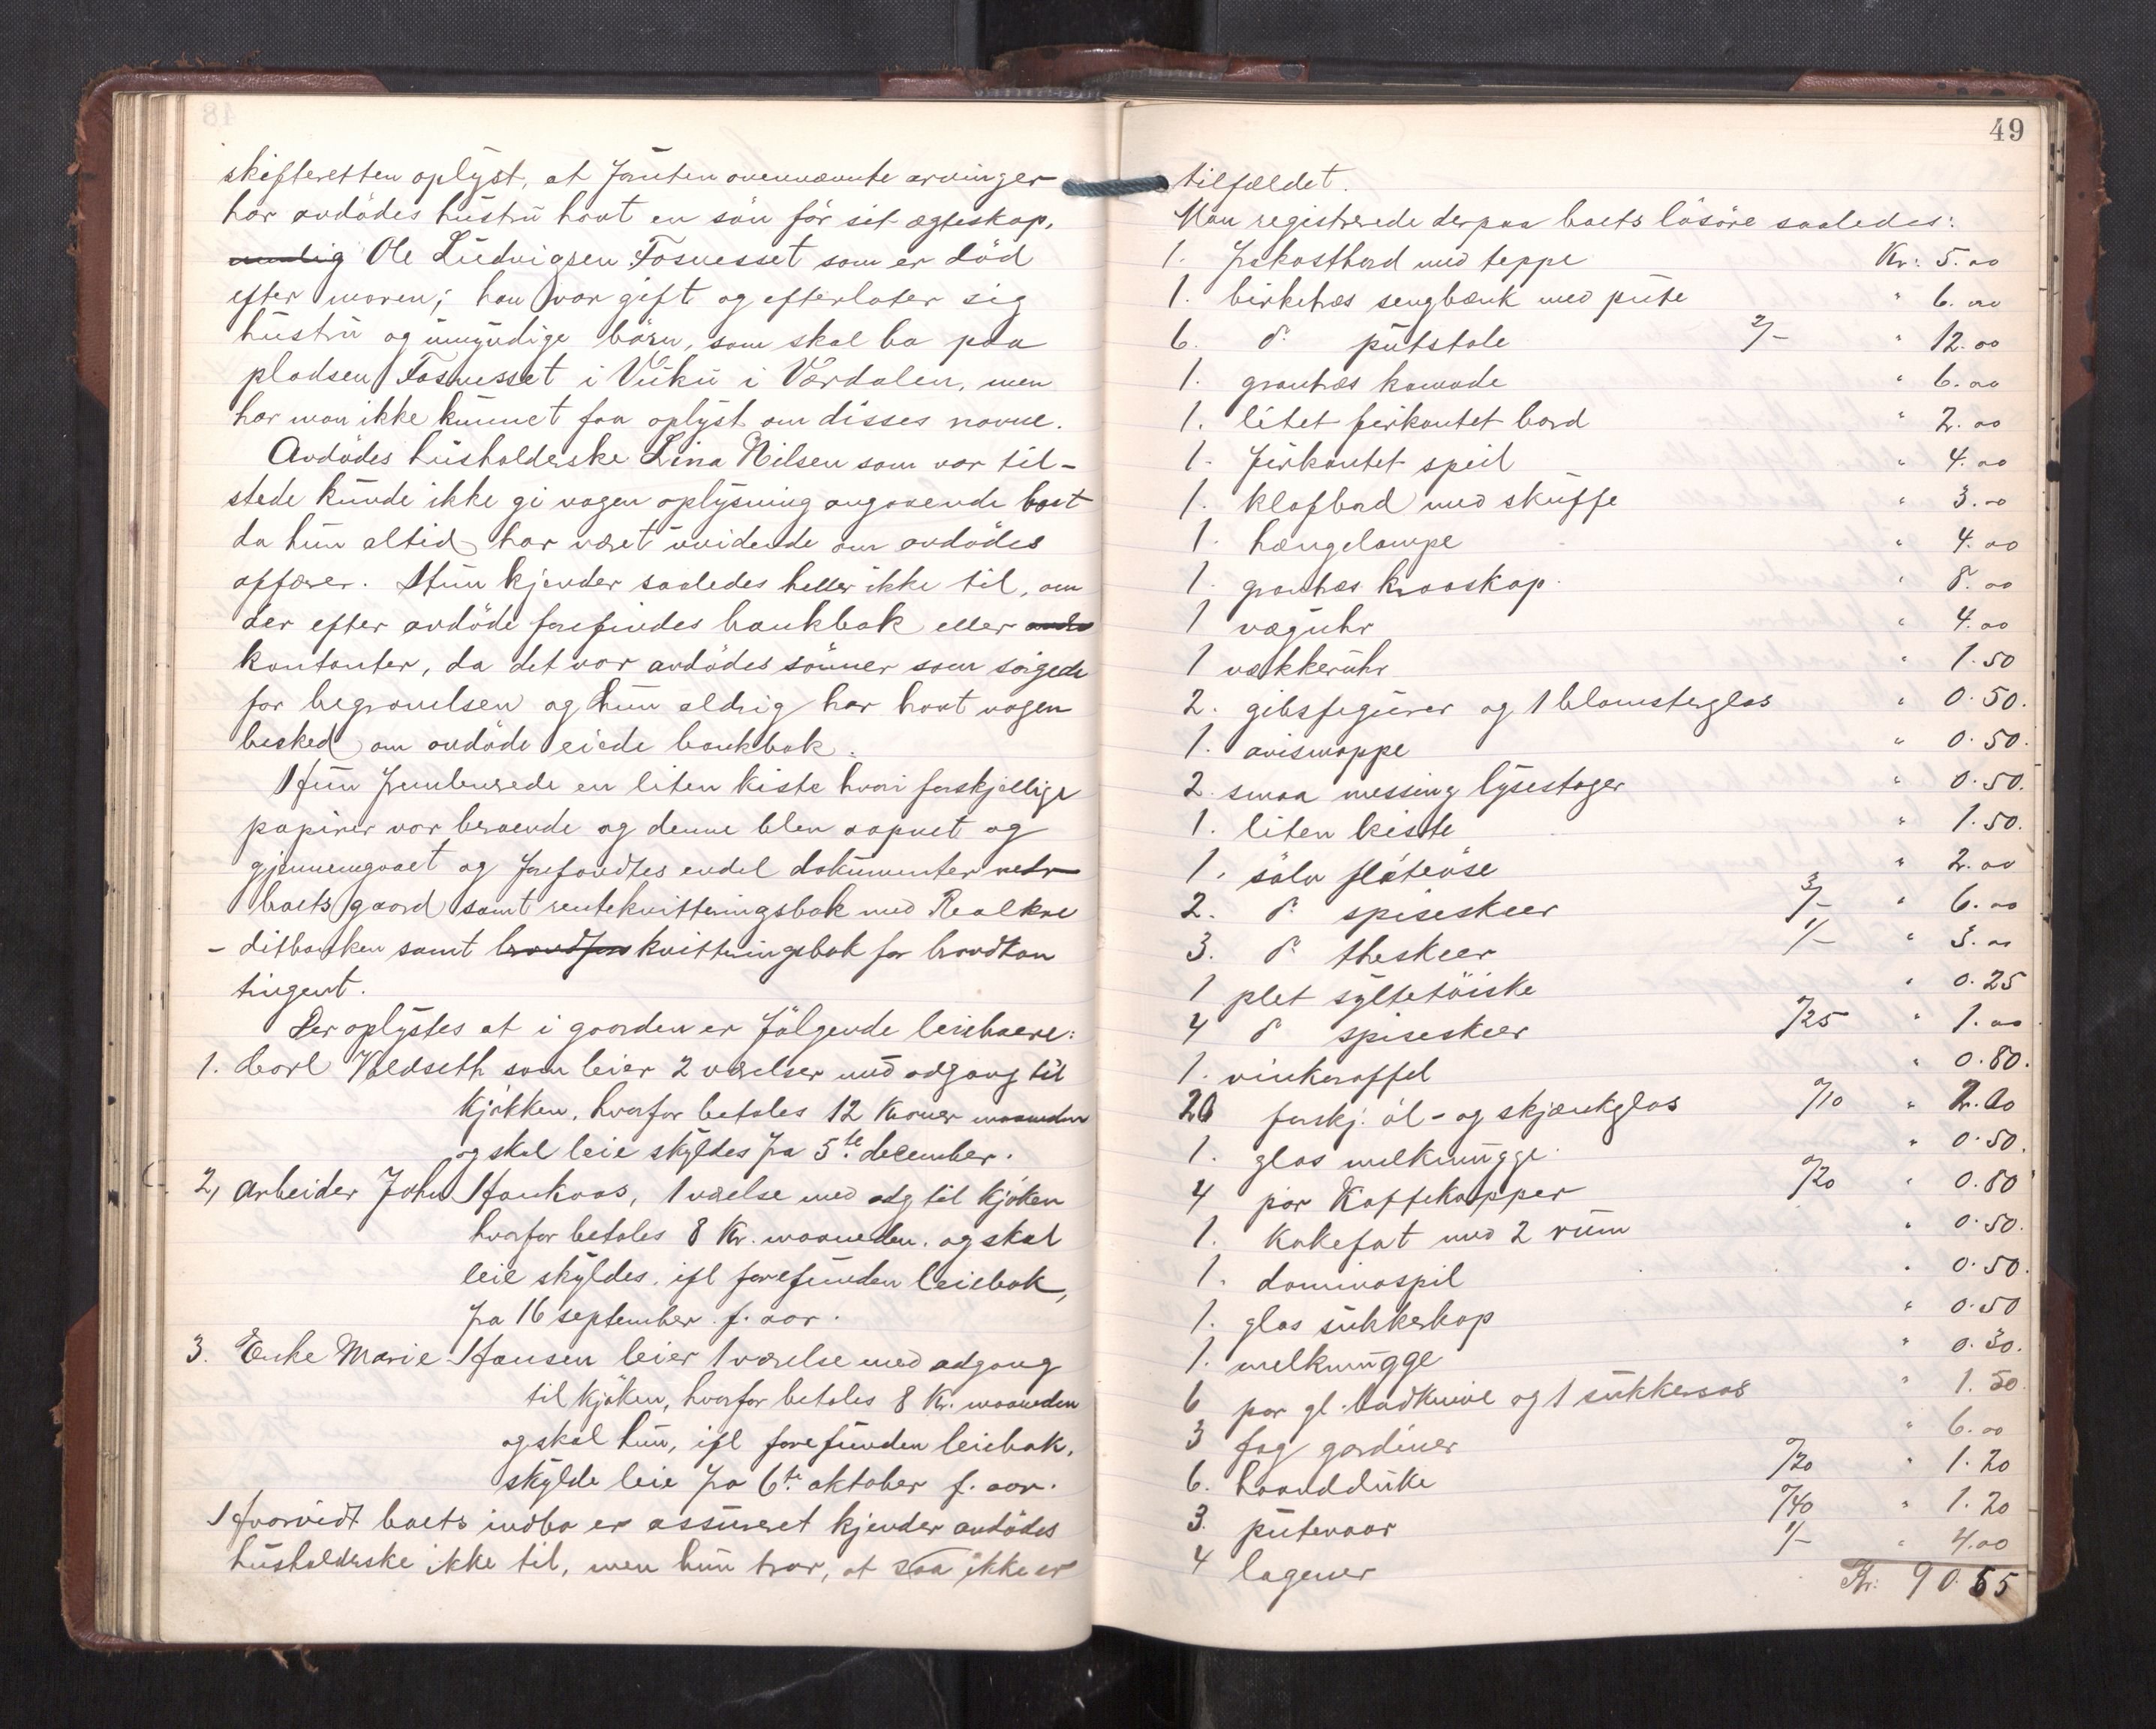 skifteretten oplyst, at foruten ovennævnte arvinger
har avdödes hustru havt en sön för sit ægteskap,
nemlig Ole Ludvigsen Fosnesset som er död
efter moren; han var gift og efterlater sig
hustru og umyndige börn, som skal bo paa
pladsen Fosnesset i Vuku i Værdalen, men
har man ikke kunnet faa oplyst om disses navne.
Avdödes husholderske Lina Nilsen som var til-
stede kunde ikke gi nogen oplysning angaaende boet
da hun altid har været uvidende om avdödes
affærer. Hun kjender saaledes heller ikke til, om
der efter avdöde forefindes bankbok eller andre
kontanter, da det var avdödes sönner som sörgede
for begravelsen og hun aldrig har havt nogen
besked om avdöde eiede bankbok.
Hun frembarede en liten kiste hvori forskjellige
papirer var beroende og denne blev aapnet og
gjennemgaaet og forefandtes endel dokumenter vedr
boets gaard samt rentekvitteringsbok med Realkre
- ditbanken samt kvitteringsbok for brandkon
tingent.
Der oplystes at i gaarden er fölgende leieboere:
1. Carl Voldseth som leier 2 værelser med adgang til
kjökken, hvorfor betales 12 Kroner maaneden
og skal leie skyldes fra 5te december.
2, Arbeider John Haukaas, 1 værelse med adg til kjöken
hvorfor betales 8 Kr. maaneden. og skal
leie skyldes. ifl forefunden leiebok,
fra 16 september f. aar.
3. Enke Marie Hansen leier 1 værelse med adgang
til kjöken, hvorfor betales 8 Kr. maaneden
og skal hun, ifl forefunden leiebok,
skylde leie fra 6te oktober f. aar.
Hvorvidt boets indbo er assureret kjender avdödes
husholderske ikke til, men hun tror, at saa ikke er
49
tilfældet.
Man registrerede derpaa boets lösöre saaledes:
1. frokostbord med teppe Kr: 5.00
1. birketræs sengbænk med pute " 6.00
6. do putstole 2/- " 12.00
1. grantræs komode " 6.00
1. litet firkantet bord " 2.00
1. firkantet speil " 4.00
1. klafbord med skuffe " 3.00
1. hængelampe " 4.00
1. grantræs kraaskap. " 8.00
1 væguhr " 4.00
1 vækkeruhr " 1.50
2. gibsfigurer og 1 blomsterglas " 0.50.
1. avismappe " 0.50.
2. smaa messing lysestager " 0.50.
1. liten kiste " 1.50.
1. sölv flöteöse " 2.00
2. do spiseskeer 3/- " 6.00
3. do theskeer 1/- " 3.00
1 plet syltetöiske " 0.25
4 do spiseskeer 0/25 " 1.00
1. vinkaraffel " 0.80.
20 forskj. öl- og skjænkglas 0/10 " 2.00
1. glas melkmugge. " 0.50.
4 par Kaffekopper 0/20 " 0.80
1. Kakefat med 2 rum " 0.50.
1. dominospil " 0.50.
1. glas sukkerkop " 0.50
1. melkmugge " 0.30.
6 par gl. bordknive og 1 sukkersaks " 1.50
3 fag gardiner " 6.00
6. haandduke 0/20 " 1.20
3. putevaar 0/40 " 1.20
4 lagener 1/- " 4.00
Kr: 90.55